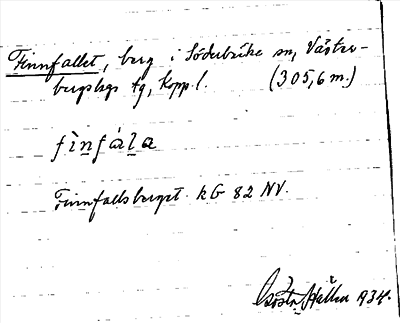 Finnfallet, berg i Söderbärke sn, Väster-
bergslags tg, Kopp. l. (305,6 m.)
fìn̲fál̲a
Finnfallsberget kG 82 NV.
Gösta Hallén 1934.